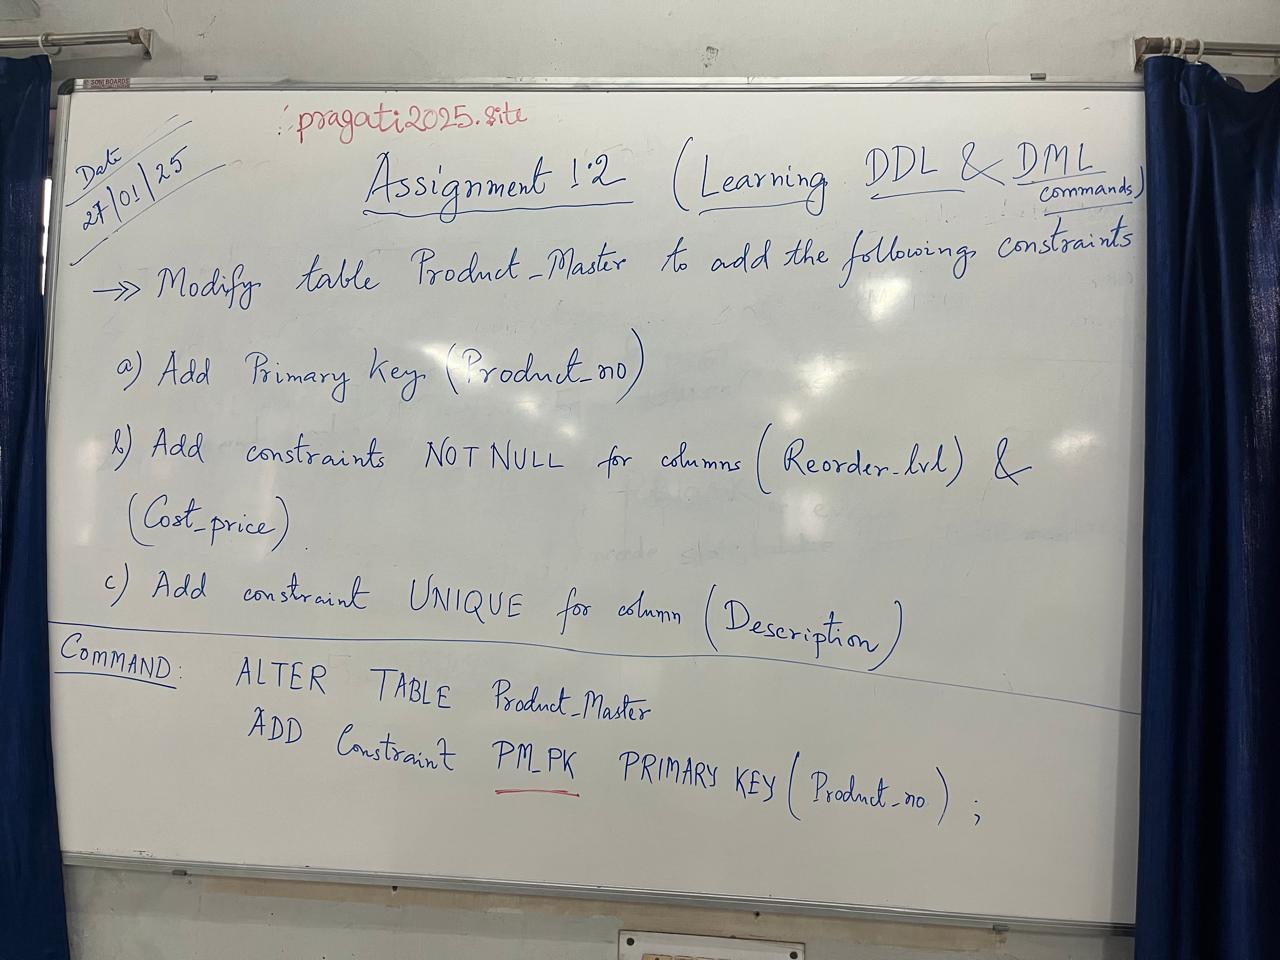 SONI BOARDS
pragati2025.site
Date
27/01/25
Assignment 1.2 (Learning DDL & DML
commands)
Modify table Product_Master to add the following constraints
a) Add Primary Key (Product_no)
b) Add constraints NOT NULL for columns (Reorder_lvl) &
(Cost_price)
c) Add constraint UNIQUE for column (Description)
COMMAND: ALTER TABLE Product_Master
ADD Constraint PM_PK PRIMARY KEY (Product_no) ;